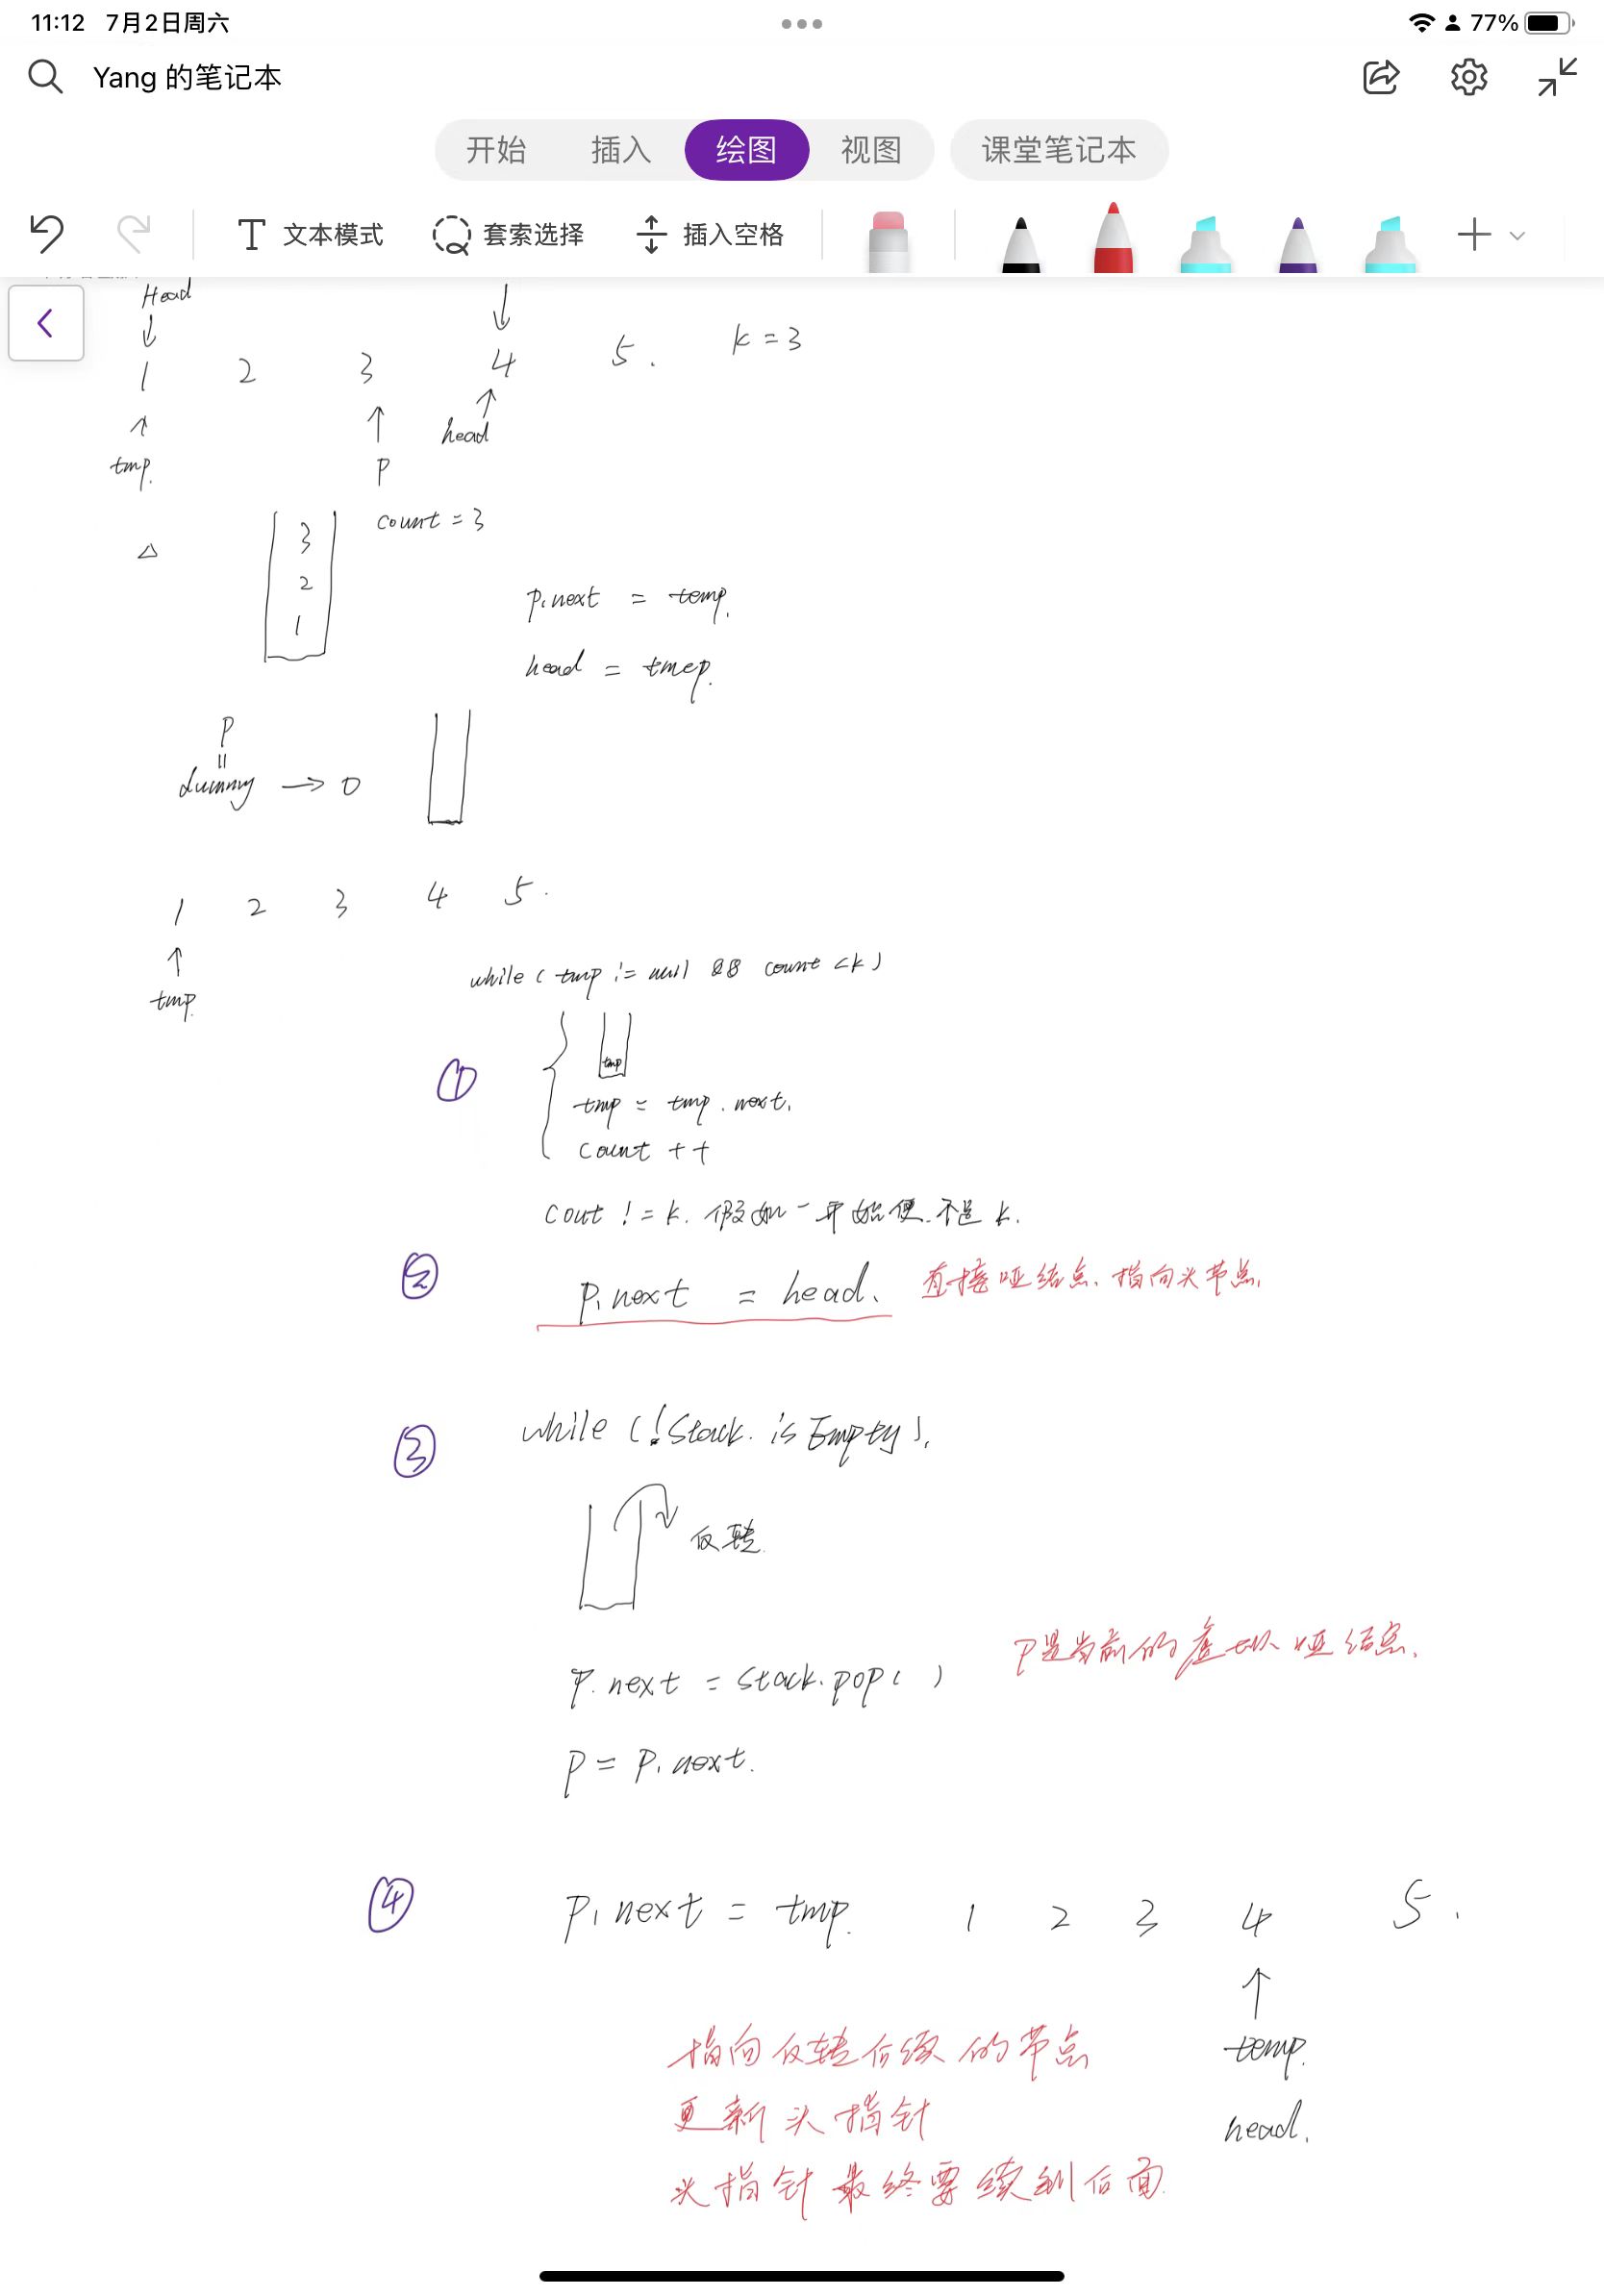 11:12 7月2日周六 77%
Yang 的笔记本
开始 插入 绘图 视图 课堂笔记本
文本模式 套索选择 插入空格
Head
1 2 3 4 5. k = 3
tmp. p head
3 count = 3
2
1
p.next = temp.
head = tmep.
p
dummy → 0
1 2 3 4 5.
tmp.
while ( tmp != null && count < k )
① tmp
tmp = tmp.next.
count ++
cout != k. 假如一开始便不是 k.
② p.next = head. 直接哑结点.指向头节点.
③ while (!Stack.isEmpty).
反转.
P是当前的 哑结点.
p.next = stack.pop( )
p = p.next.
④ p.next = tmp. 1 2 3 4 5.
指向反转后续的节点 temp.
更新头指针 head.
头指针最终要续到后面.